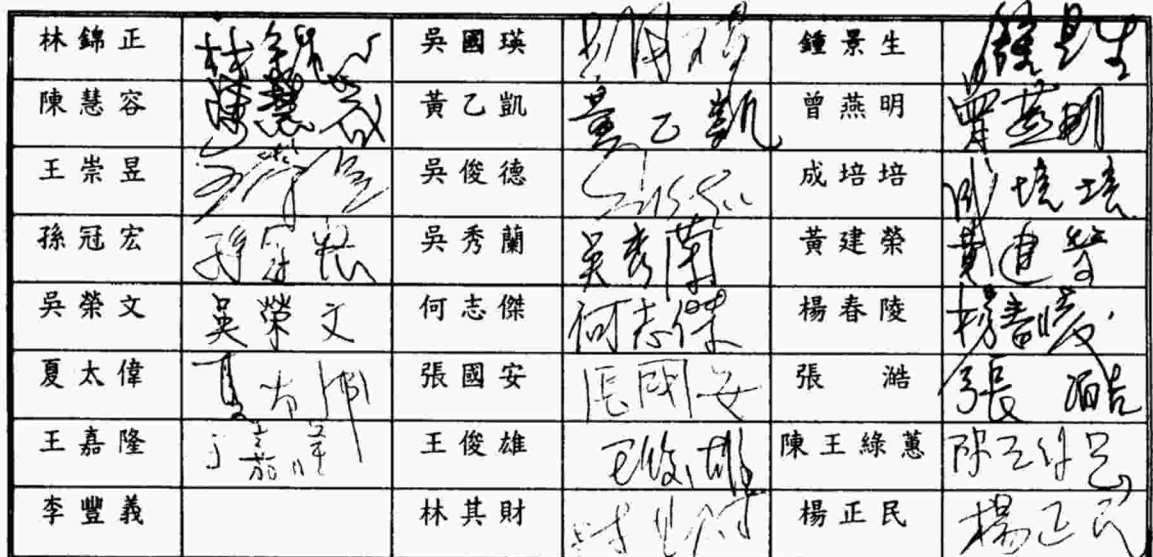 林錦正 林錦正 吳國瑛 吳國瑛 鍾景生 鍾景生
陳慧容 陳慧容 黃乙凱 黃乙凱 曾燕明 曾燕明
王崇昱 吳俊德 成培培 成培培
孫冠宏 孫冠宏 吳秀蘭 吳秀蘭 黃建榮 黃建榮
吳榮文 吳榮文 何志傑 何志傑 楊春陵 楊春陵
夏太偉 夏太偉 張國安 張國安 張澔 張澔
王嘉隆 王嘉隆 王俊雄 王俊雄 陳王綠蕙
李豐義 林其財 楊正民 楊正民